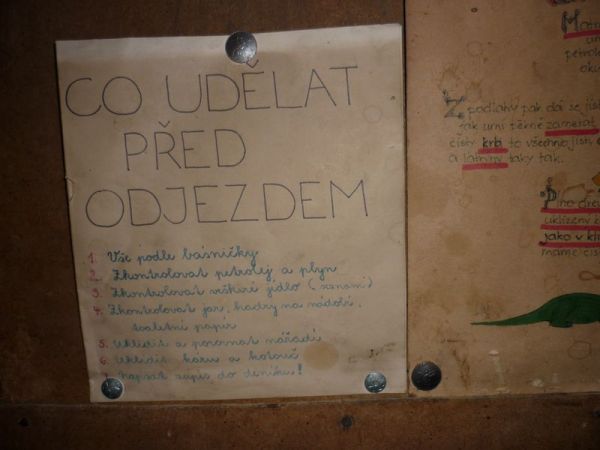 CO UDĚLAT
PŘED
ODJEZDEM
1. Vše podle básničky
2. Zkontrolovat petrolej a plyn
3. Zkontrolovat veškeré jídlo (seznam)
4. Zkontrolovat jar, hadry na nádobí,
toaletní papír
5. Uklidit a porovnat nářadí
6. Uklidit kozu a kotouč
7. napsat zápis do deníku!
Z podlahy pak dá se jíst
jak umí pěkně zametat
čistý krb to všechno jistí
a latríny taky tak.
Plno
uklizený
jako v
máme